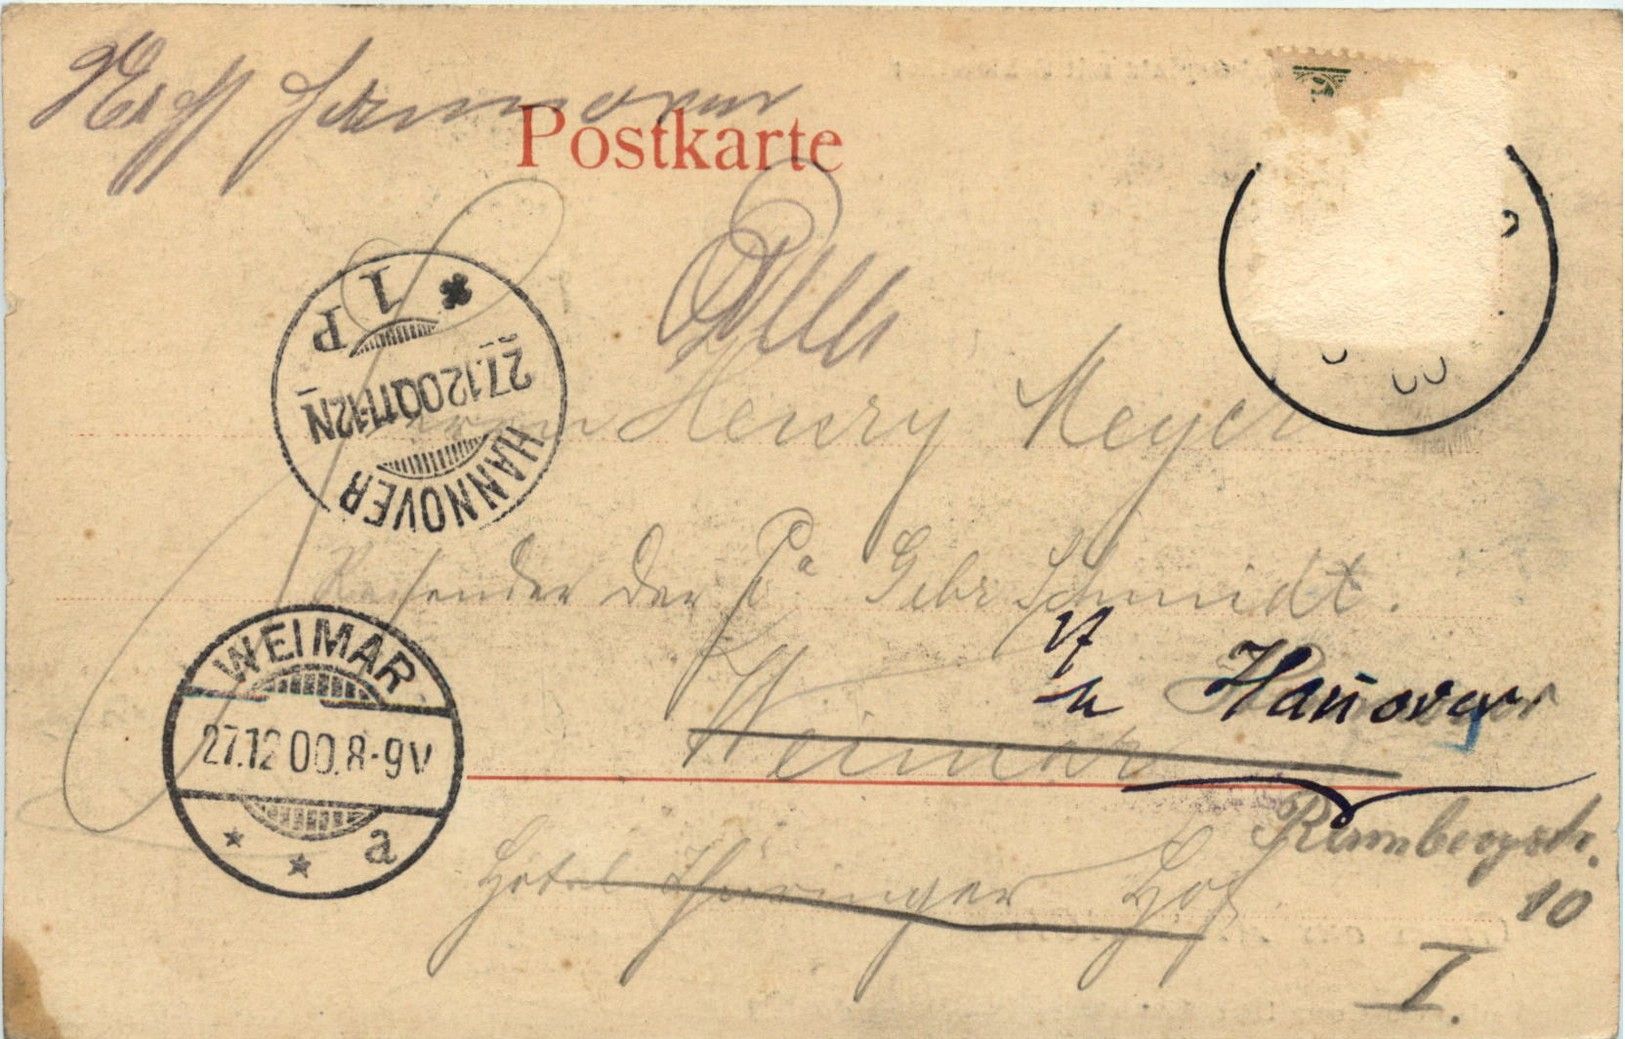 Postkarte
Hannover
1 P
27.12.00.11-12N
HANNOVER
Herrn Henry Meyer
Reisender der Fa Gebr. Schmidt.
Hanover
Weimar
WEIMAR
27.12 00.8-9V
a
Rumbergstr.
10
Hotel Thüringer Hof
I.